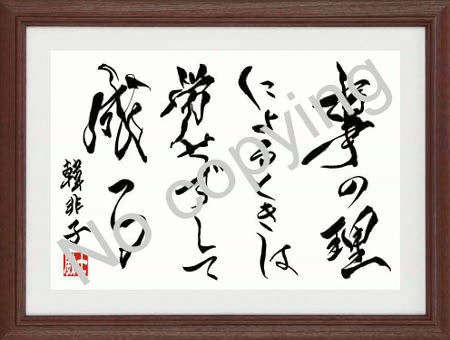 事の理
によるときは
労せずして
成る
韓非子
No copying